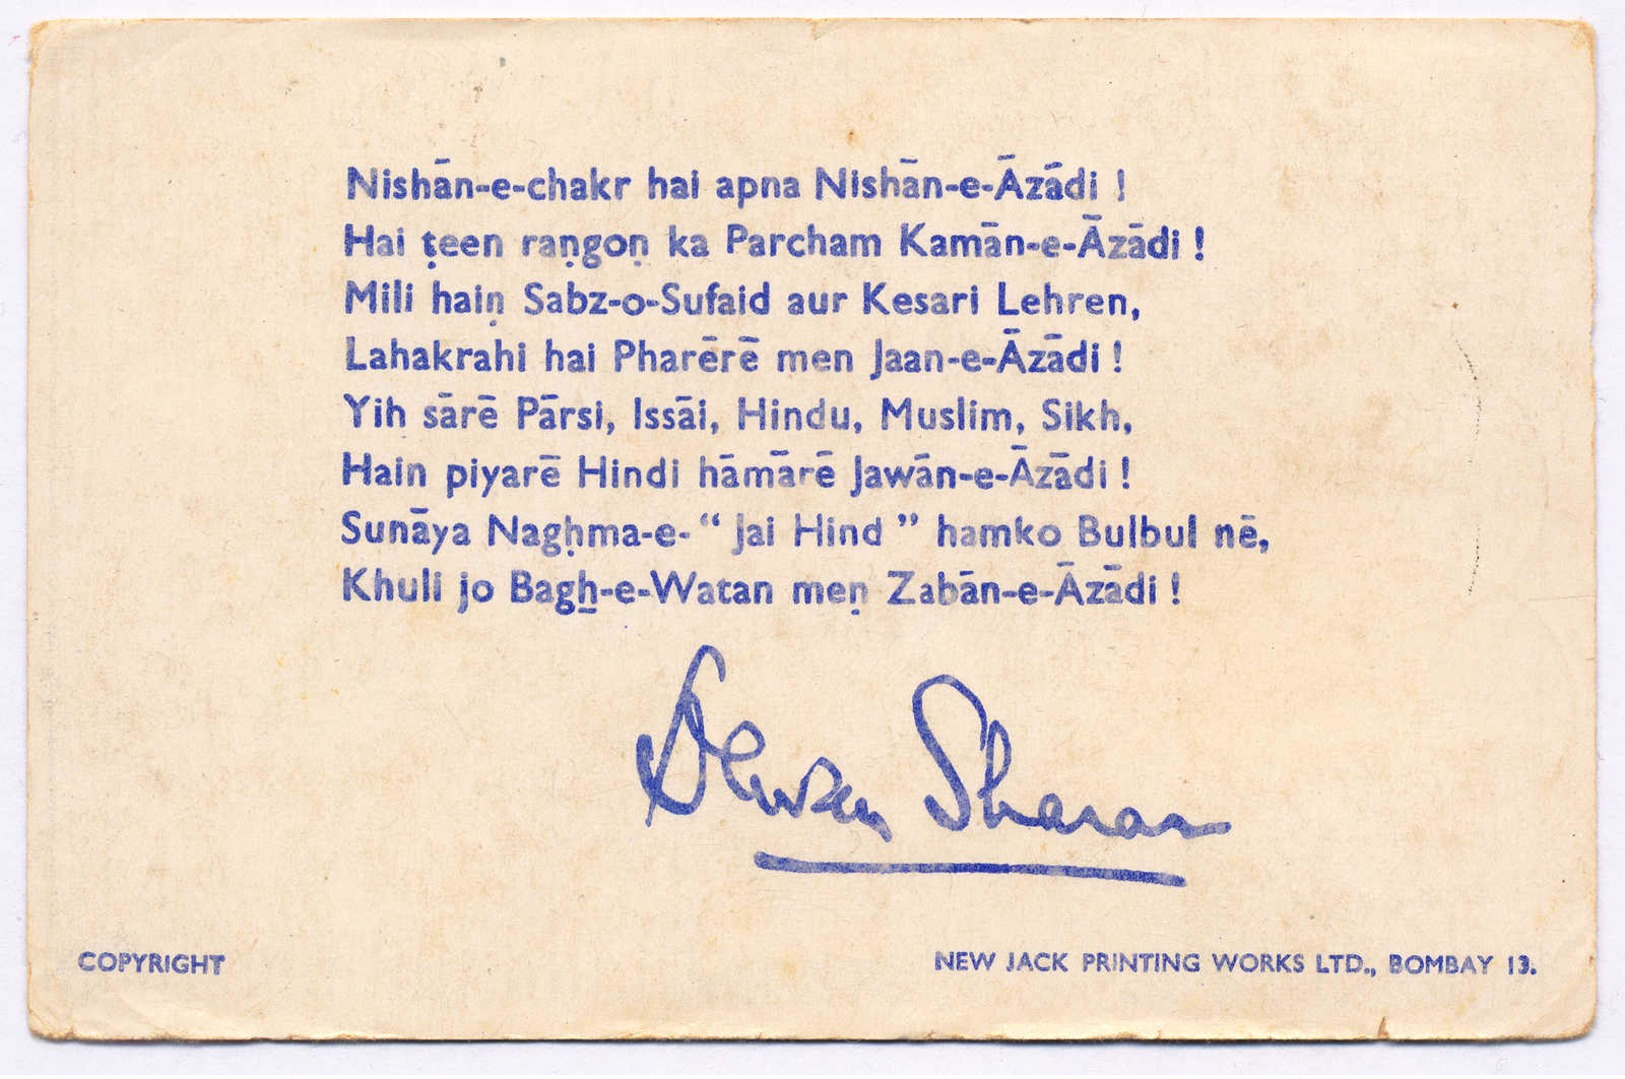 Nishān-e-chakr hai apna Nishān-e-Āzādi !
Hai ṭeen raṇgoṇ ka Parcham Kamān-e-Āzādi !
Mili haiṇ Sabz-o-Sufaid aur Kesari Lehren,
Lahakrahi hai Pharērē men Jaan-e-Āzādi !
Yih sārē Pārsi, Issāi, Hindu, Muslim, Sikh,
Hain piyarē Hindi hāmārē Jawān-e-Āzādi !
Sunāya Nagḥma-e- “ Jai Hind ” hamko Bulbul nē,
Khuli jo Bagẖ-e-Watan meṇ Zabān-e-Āzādi !
Dewan Sharar
COPYRIGHT
NEW JACK PRINTING WORKS LTD., BOMBAY 13.